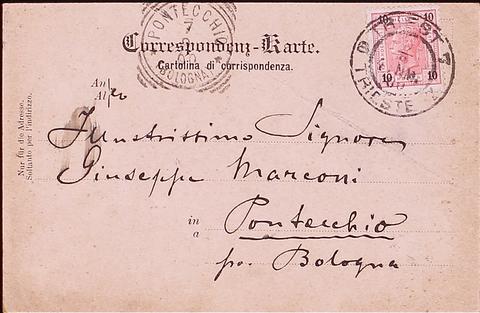 PONTECCHIO
7
BOLOGNA
10 10
10 10
TRIEST 7
TRIESTE
Correspondenz-Karte.
Cartolina di corrispondenza.
An
Al
Nur für die Adresse.
Soltanto per l'indirizzo.
Illustrissimo Signore
Giuseppe Marconi
in
a
Pontecchio
po. Bologna